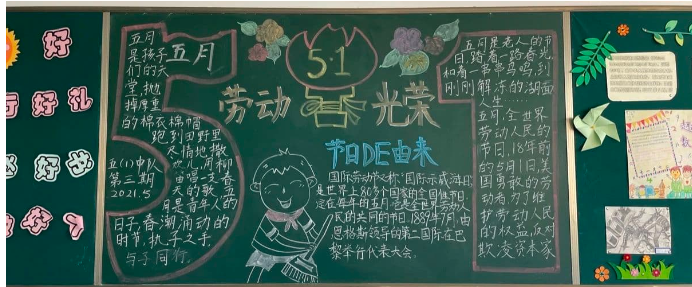 好
行好礼
好
好人
五月
是孩子
们的天
堂,抛
掉厚重
的棉衣棉帽
跑到田野里
尽情地撒
欢儿,用柳
笛唱一支春
天的歌,五
月是青年人的
日子,春潮涌动的
时节,执子之手,
与子同行。
五月
五(1)中队
第三期
2021.5
5·1
劳动
光荣
节日DE由来
国际劳动节又称"国际示威游行日"
是世界上80多个国家的全国性节日
定在每年的五月一日是全世界劳动人
民的共同的节日,1889年7月,由
恩格斯领导的第二国际在巴
黎举行代表大会。
五月是老人的节
日,踏着一路春光
和着一串串鸟鸣,到
刚刚解冻的湖面
人生……
五月,全世界
劳动人民的
节日,
的5月1日,美
国勇敢的劳
动者为了维
护劳动人民
的权益,反对
欺凌资本家